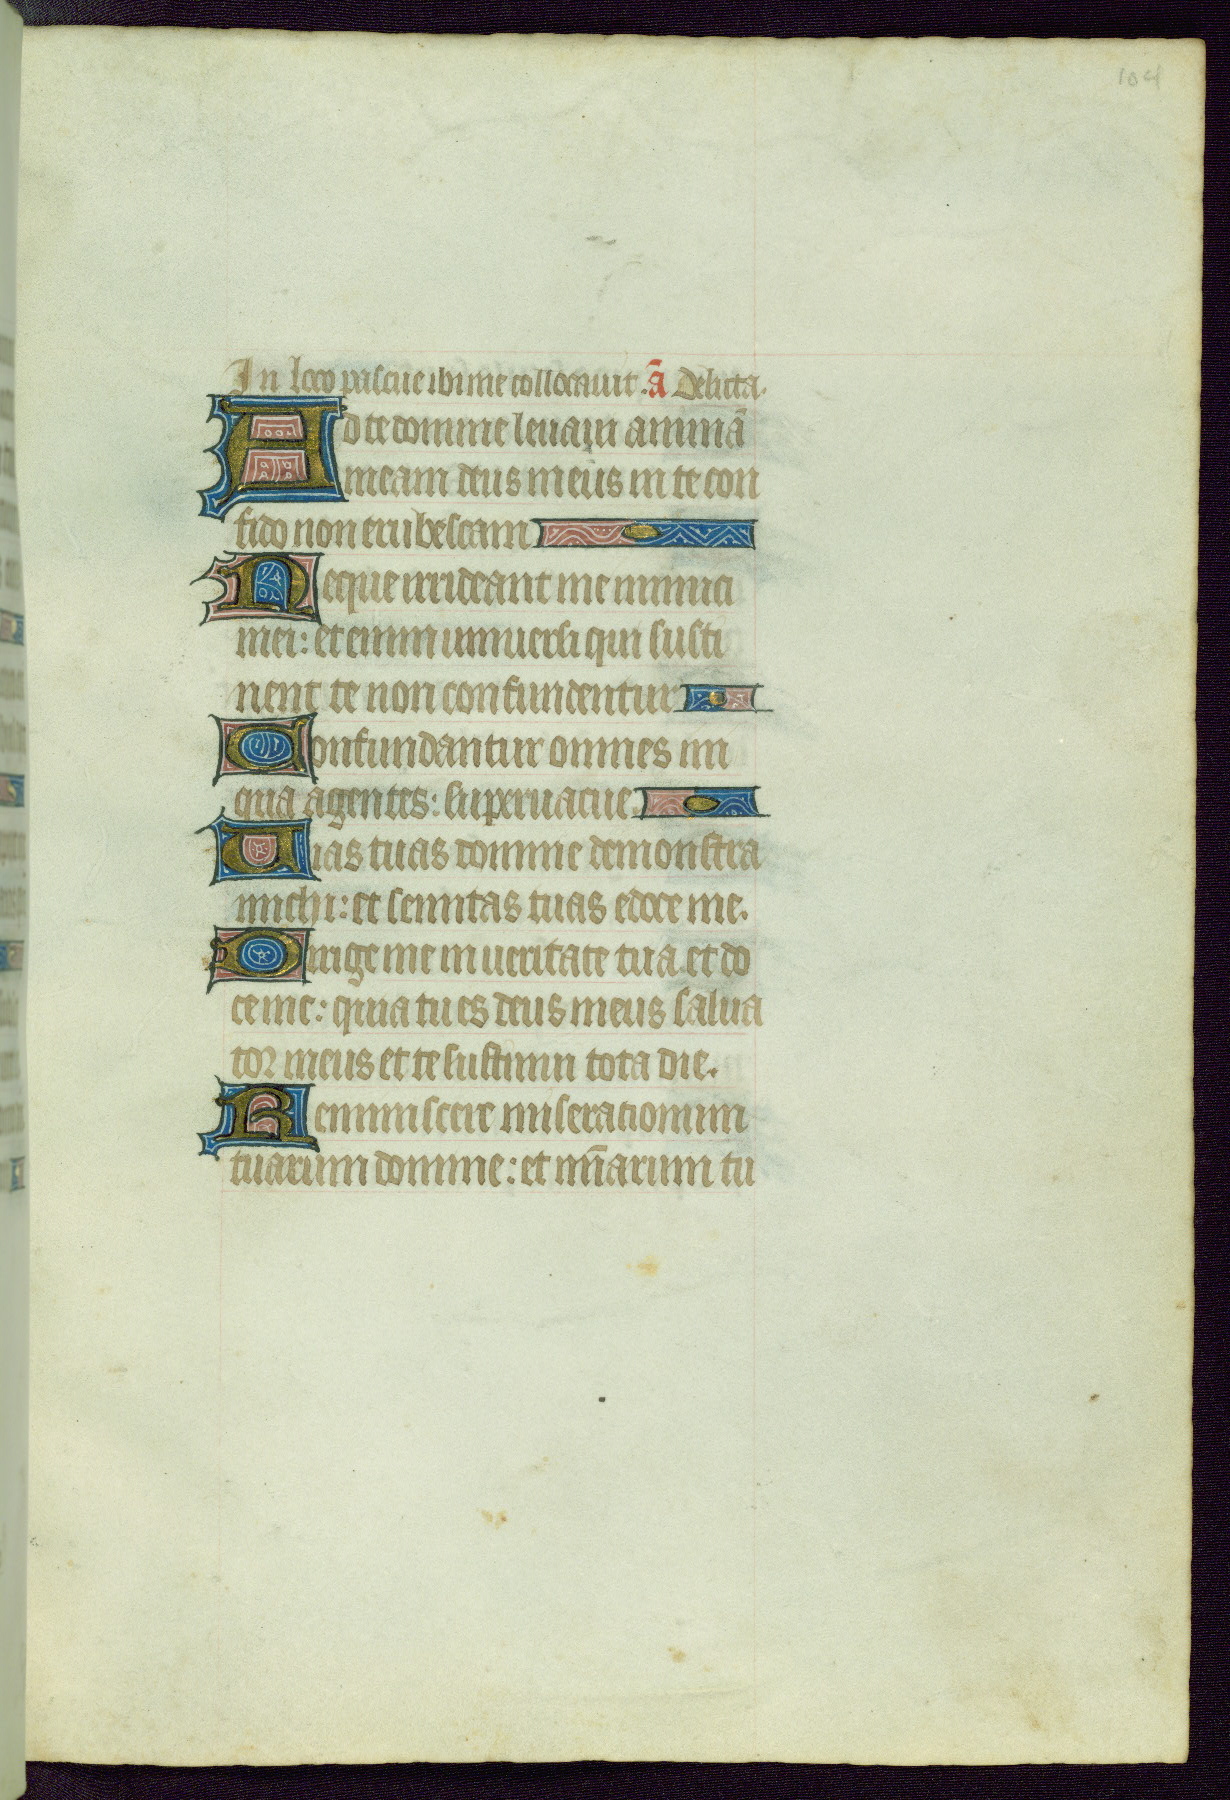 104
In loco pascue ibi me collocauit. a̅ Delicta.
Ad te domine leuaui animā
meam deus meus in te con
fido non erubescam
Neque irrideant me inimici
mei: et enim uniuersi qui susti
nent te non confundentur
Confundantur omnes ini
qua agentes: superuacue.
Uias tuas domine demonstra
michi: et semitas tuas edoce me.
Dirige me in ueritate tua et do
ce me: quia tu es deus meus salua
tor meus et te sustinui tota die.
Reminiscere miserationum
tuarum domine: et mīarum tu